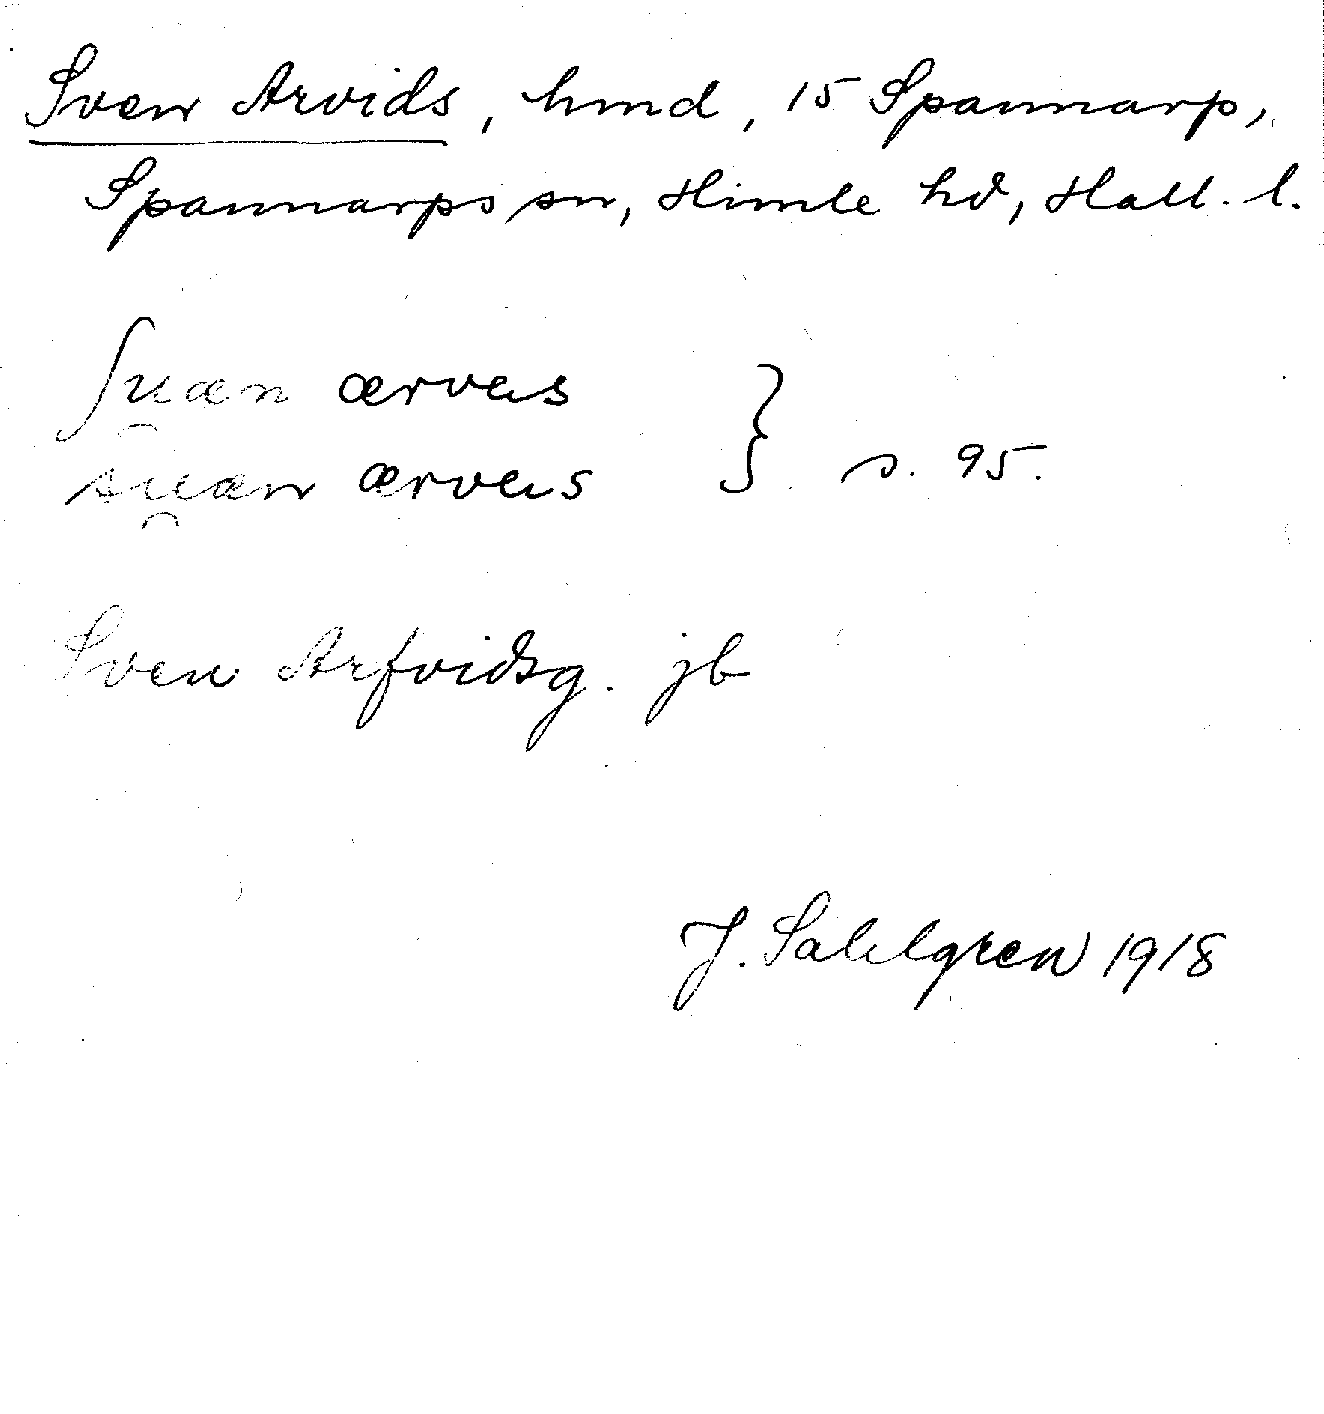 Sven Arvids, hmd, 15 Spannarp,
Spannarps sn, Himle hd, Hall. l.
ſu̯æn ærvəs
su̯æn ærvəs } s. 95.
Sven Arfvidsg. jb
J. Sahlgren 1918